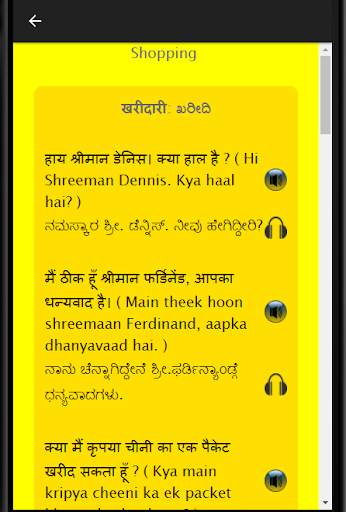 Shopping
खरीदारी: ಖರೀದಿ
हाय श्रीमान डेनिस। क्या हाल है ? ( Hi
Shreeman Dennis. Kya haal
hai? )
ನಮಸ್ಕಾರ ಶ್ರೀ. ಡೆನ್ನಿಸ್. ನೀವು ಹೇಗಿದ್ದೀರಿ?
मैं ठीक हूँ श्रीमान फर्डिनेंड, आपका
धन्यवाद है। ( Main theek hoon
shreemaan Ferdinand, aapka
dhanyavaad hai. )
ನಾನು ಚೆನ್ನಾಗಿದ್ದೇನೆ ಶ್ರೀ.ಫರ್ಡಿನ್ಯಾಂಡ್ಗೆ
ಧನ್ಯವಾದಗಳು.
क्या मैं कृपया चीनी का एक पैकेट
खरीद सकता हूँ ? ( Kya main
kripya cheeni ka ek packet